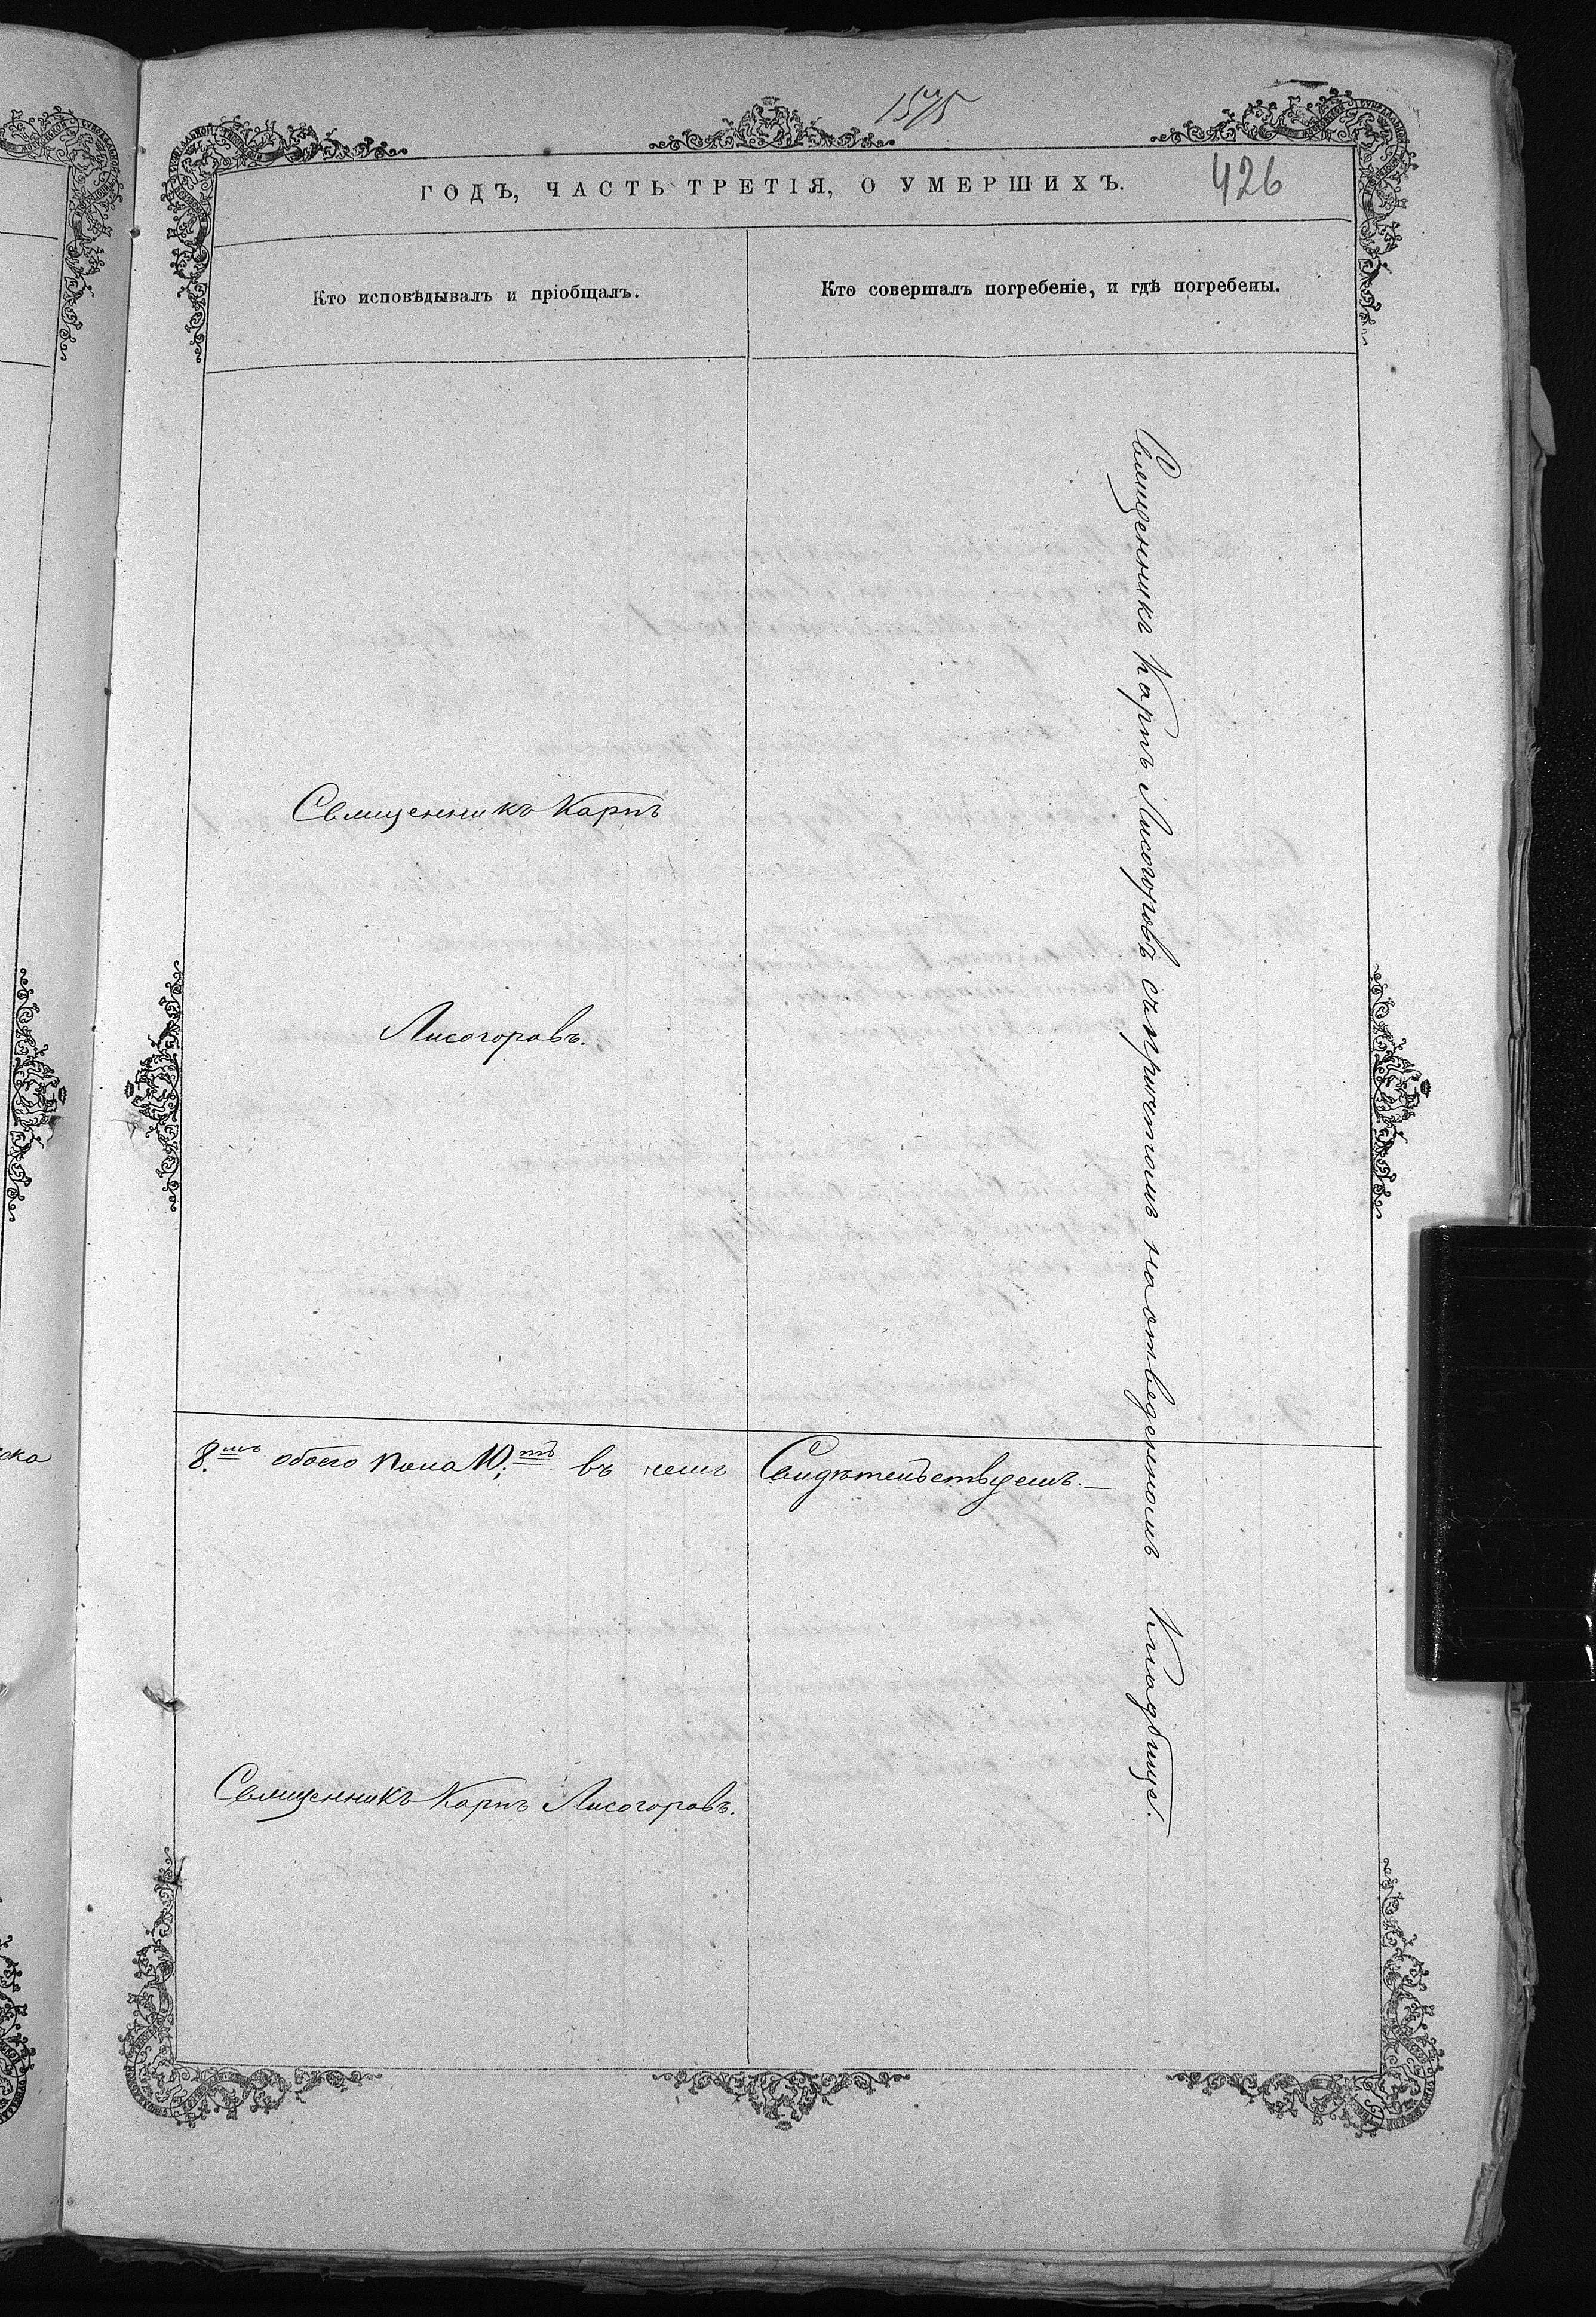 1575
ГОДЪ, ЧАСТЬ ТРЕТІЯ, О УМЕРШИХЪ.
426
Кто исповѣдывалъ и пріобщалъ.
Кто совершалъ погребеніе, и гдѣ погребены.
Священникъ Карпъ
Лисогоровъ.
Священникъ Карпъ Лисогоровъ съ причтомъ на отведенномъ Кладбище.
ска
8.мъ обоего пола 10;тъ въ чемъ Свидѣтельствуемъ.—
Священникъ Карпъ Лисогоровъ.